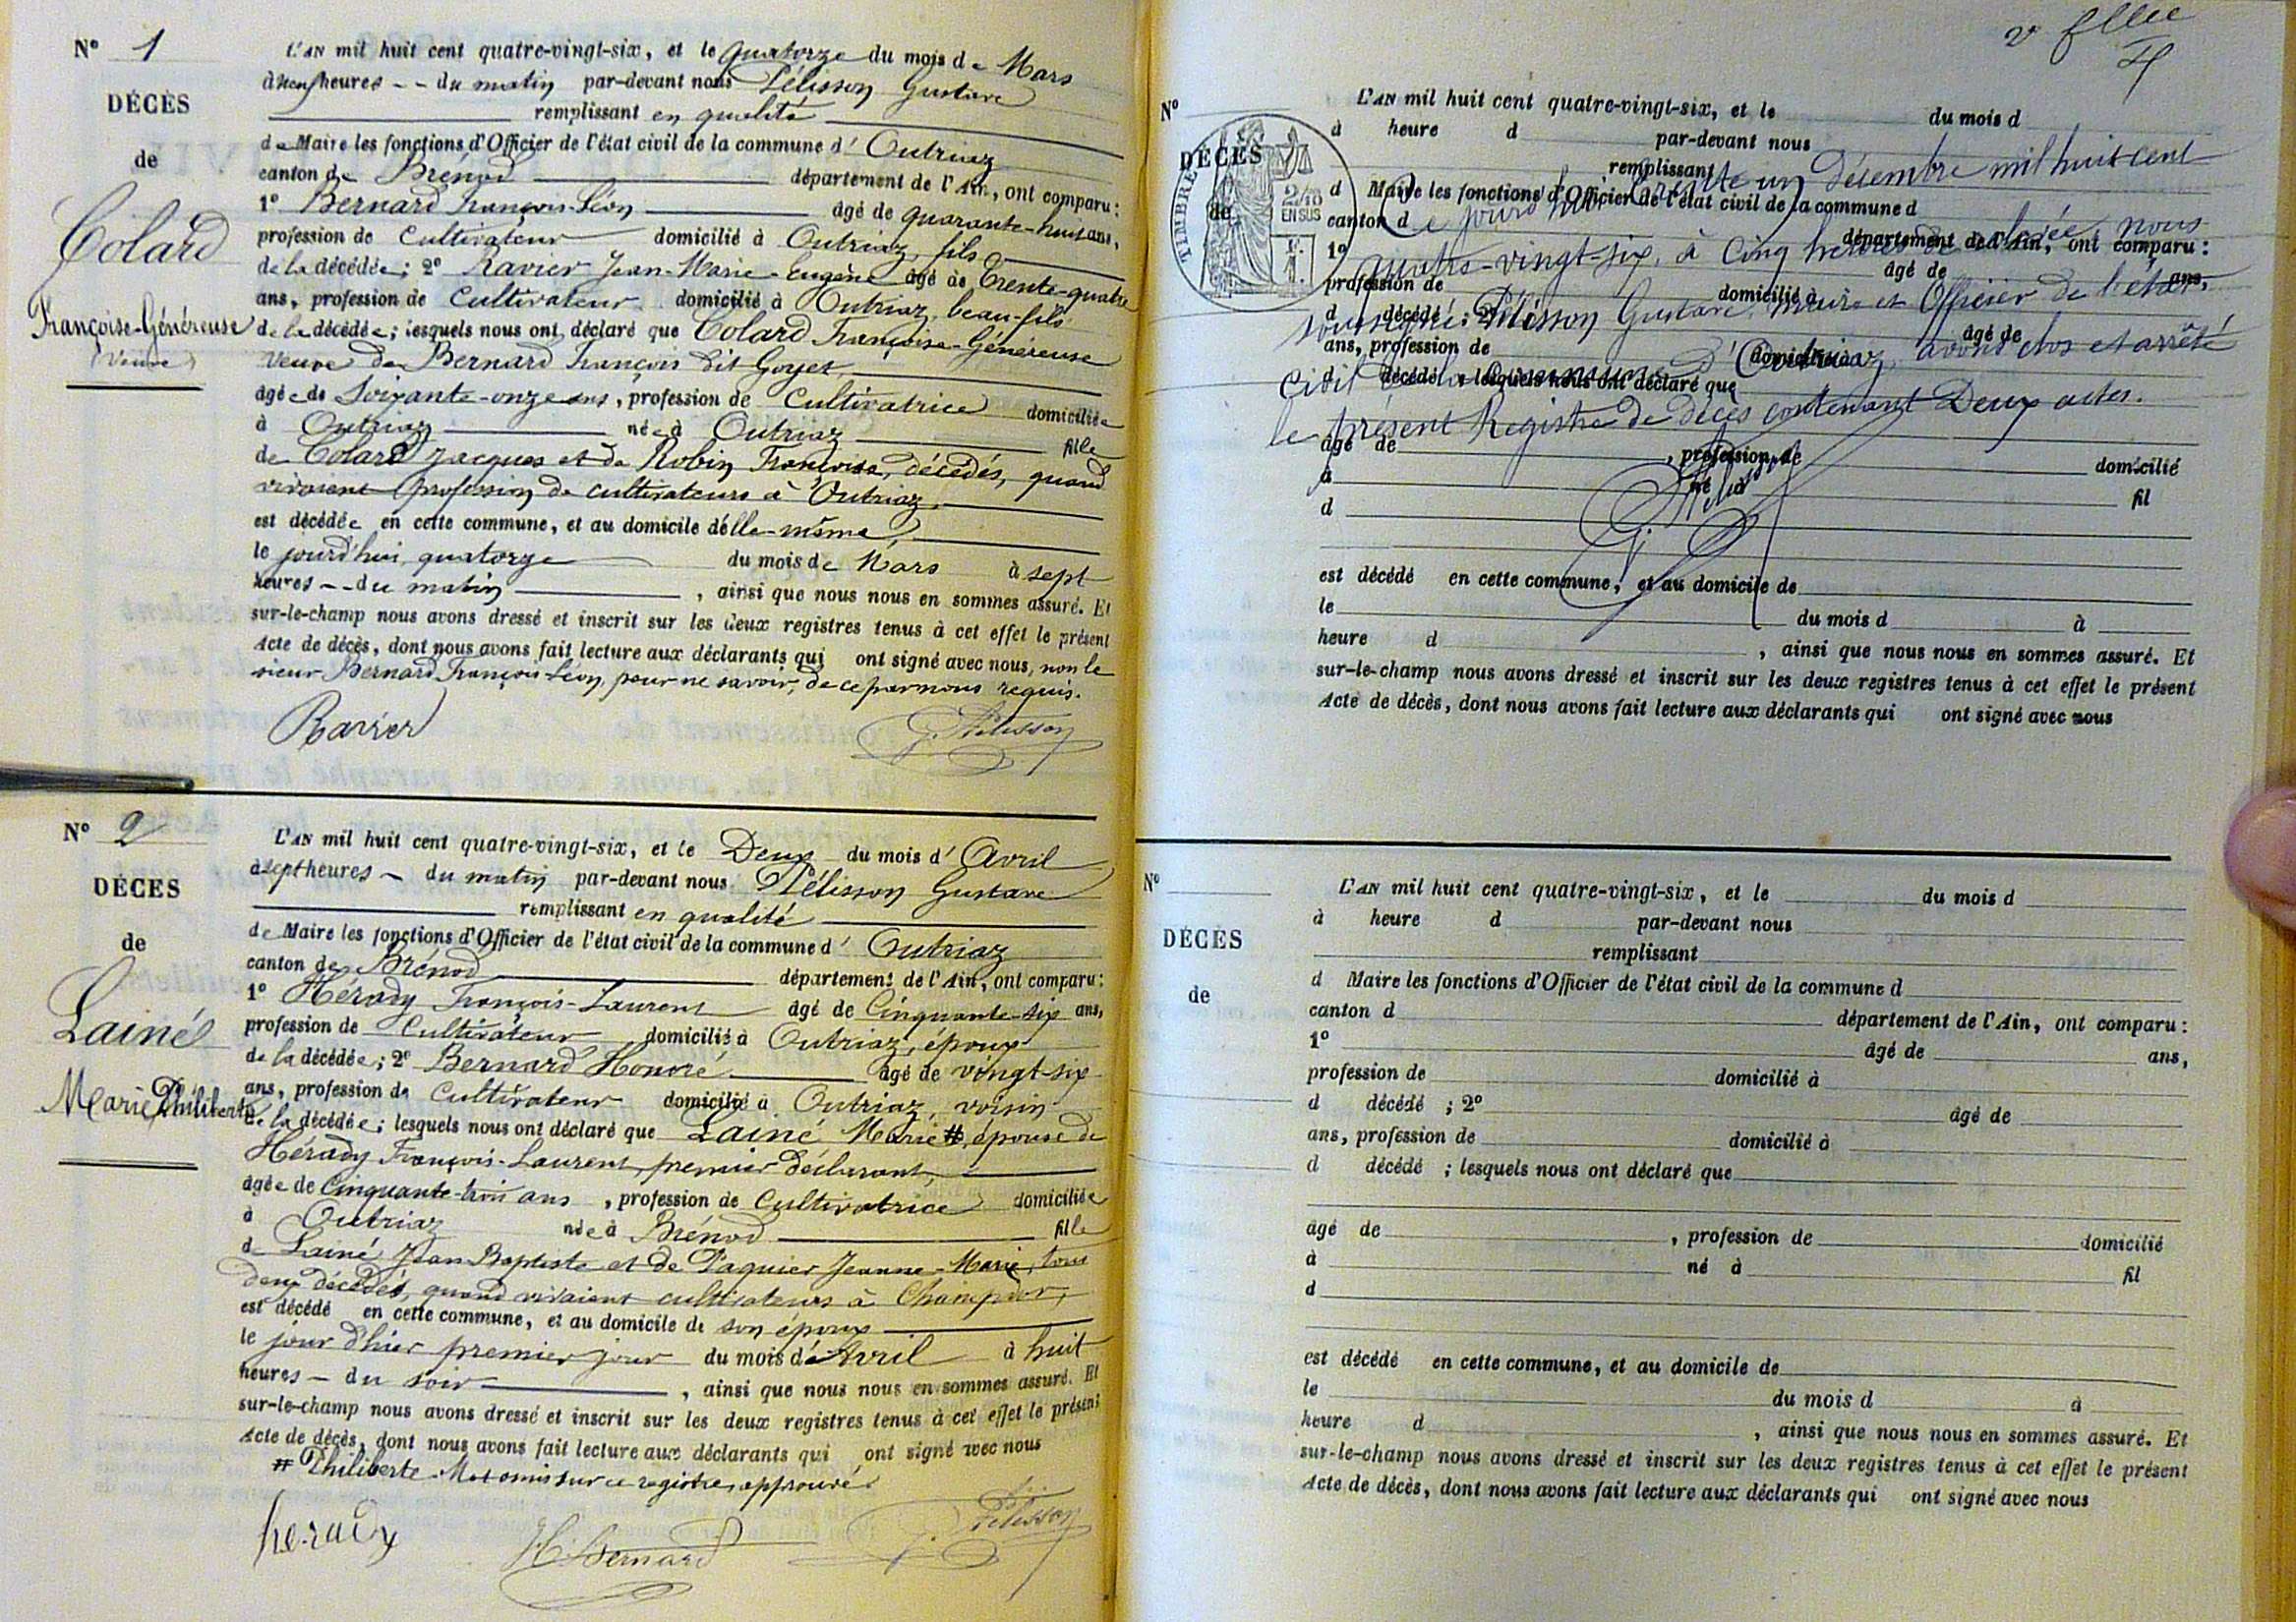 N° 1
DÉCÈS
de
Colard
Françoise-Généreuse
(Veuve)
L'AN mil huit cent quatre-vingt-six, et le quatorze du mois de Mars
à neuf heures -- du matin par-devant nous Pélisson Gustave
remplissant en qualité
de Maire les fonctions d'Officier de l'état civil de la commune d' Outriaz
canton de Brénod département de l'Ain, ont comparu:
1° Bernard François-Léon âgé de quarante-huit ans,
profession de Cultivateur domicilié à Outriaz, fils
de la décédée; 2° Ravier Jean-Marie-Eugène âgé de Trente-quatre
ans, profession de Cultivateur domicilié à Outriaz, beau-fils
de la décédée; lesquels nous ont déclaré que Colard Françoise-Généreuse
veuve de Bernard François dit Goyet,
âgée de Soixante-onze ans, profession de Cultivatrice domiciliée
à Outriaz née à Outriaz fille
de Colard Jacques et de Robin Françoise, décédés, quand
vivaient profession de cultivateurs à Outriaz,
est décédée en cette commune, et au domicile d'elle-même,
le jourd'hui quatorze du mois de Mars à sept
heures -- du matin, ainsi que nous nous en sommes assuré. Et
sur-le-champ nous avons dressé et inscrit sur les deux registres tenus à cet effet le présent
Acte de décès, dont nous avons fait lecture aux déclarants qui ont signé avec nous, non le
sieur Bernard François-Léon, pour ne savoir, de ce par nous requis.
Ravier G. Pélisson
N° 2
DÉCÈS
de
Lainé
Marie Philiberte
L'AN mil huit cent quatre-vingt-six, et le Deux du mois d' Avril
à sept heures - du matin par-devant nous Pélisson Gustave
remplissant en qualité
de Maire les fonctions d'Officier de l'état civil de la commune d' Outriaz
canton de Brénod département de l'Ain, ont comparu:
1° Hérady François-Laurent âgé de Cinquante-six ans,
profession de Cultivateur domicilié à Outriaz, époux
de la décédée; 2° Bernard Honoré âgé de vingt-six
ans, profession de Cultivateur domicilié à Outriaz, voisin
de la décédée; lesquels nous ont déclaré que Lainé Marie #, épouse de
Hérady François-Laurent, premier déclarant,
âgée de Cinquante-trois ans, profession de Cultivatrice domiciliée
à Outriaz née à Brénod fille
de Lainé Jean Baptiste et de Paquier Jeanne-Marie, tous
deux décédés, quand vivaient cultivateurs à Champdor,
est décédé en cette commune, et au domicile de son époux
le jour d'hier premier jour du mois d'Avril à huit
heures - du soir, ainsi que nous nous en sommes assuré. Et
sur-le-champ nous avons dressé et inscrit sur les deux registres tenus à cet effet le présent
Acte de décès, dont nous avons fait lecture aux déclarants qui ont signé avec nous
# Philiberte. Mot omis sur ce registre, approuvé.
herady H. Bernard G. Pélisson
N°
DÉCÈS
de
TIMBRE
2/10
EN SUS
L'AN mil huit cent quatre-vingt-six, et le du mois d
à heure d par-devant nous
remplissant
Ce jourd'hui trente un Décembre mil huit cent
d Maire les fonctions d'Officier de l'état civil de la commune d
canton d département de l'Ain, ont comparu:
quatre-vingt-six, à Cinq heures de la soirée, nous
1° âgé de ans,
profession de domicilié à
soussigné Pélisson Gustave, maire et Officier de l'état
d décédé ; 2° âgé de
ans, profession de domicilié à
Civil de la commune d'Outriaz, avons clos et arrêté
d décédé ; lesquels nous ont déclaré que
le présent Registre de décès contenant Deux actes.
âgé de , profession de domicilié
à né à fil
d
G. Pélisson
est décédé en cette commune, et au domicile de
le du mois d à
heure d , ainsi que nous nous en sommes assuré. Et
sur-le-champ nous avons dressé et inscrit sur les deux registres tenus à cet effet le présent
Acte de décès, dont nous avons fait lecture aux déclarants qui ont signé avec nous
N°
DÉCÈS
de
L'AN mil huit cent quatre-vingt-six, et le du mois d
à heure d par-devant nous
remplissant
d Maire les fonctions d'Officier de l'état civil de la commune d
canton d département de l'Ain, ont comparu:
1° âgé de ans,
profession de domicilié à
d décédé ; 2° âgé de
ans, profession de domicilié à
d décédé ; lesquels nous ont déclaré que
âgé de , profession de domicilié
à né à fil
d
est décédé en cette commune, et au domicile de
le du mois d à
heure d , ainsi que nous nous en sommes assuré. Et
sur-le-champ nous avons dressé et inscrit sur les deux registres tenus à cet effet le présent
Acte de décès, dont nous avons fait lecture aux déclarants qui ont signé avec nous